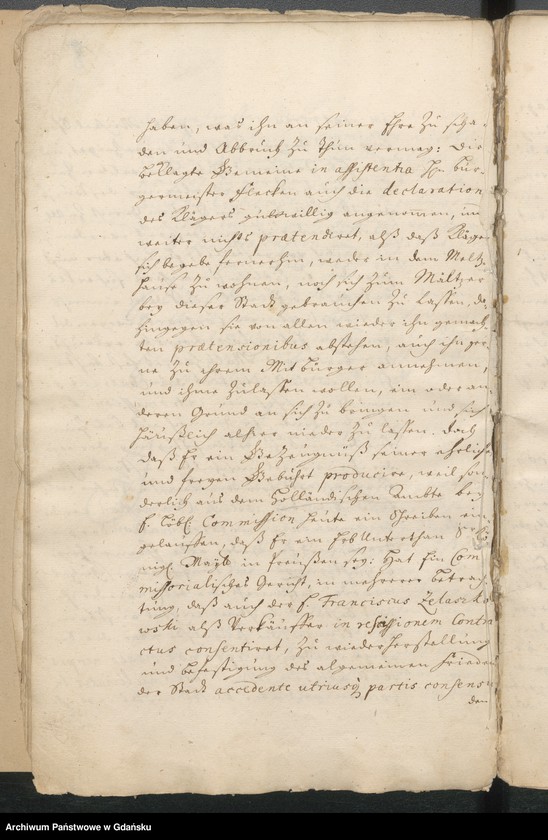 haben, was ihn an seiner Ehre zu scha-
den und Abbruch zu thun vermag: Die
beklagte Gemeine in assistentia Hn. Bür-
germeister Flecken auch die declaration
des Klägers gutwillig angenommen, und
weiter nichts prætendiret, alß daß Kläger
sich begebe fernerhin, weder in dem Maltz-
hause zu wohnen, noch sich zum Mältzer
bey dieser Stadt gebrauchen zu lassen, da
hingegen sie von allen wieder ihn gemach-
ten prætensionibus abstehen, auch ihn ger-
ne zu ihrem Mitbürger annehmen,
und ihme zulassen wollen, ein oder an-
deren Grund an sich zu bringen und sich
häußlich alhier nieder zu lassen. Doch
daß Er ein Gezeugnüß seiner ehrlichen
und freyen Gebuhrt producire, weil son-
derlich aus dem Holländischen Ambte bey
h. Löbl. Commission heute ein Schreiben ein-
gelauffen, daß Er ein Erb Unterthan
nigl. Maytt. in Preußen sey: Hat Ein Com-
missorialisches Gericht, in mehrerer betrach-
tung, daß auch der H. Franciscus Zelaszko
wski alß Verkäuffer in rescissionem Contra-
ctus consentiret, zu wiederherstellung
und befestigung des algemeinen Frieden
der Stadt accedente utriusq partis consensu
den
Archiwum Państwowe w Gdańsku